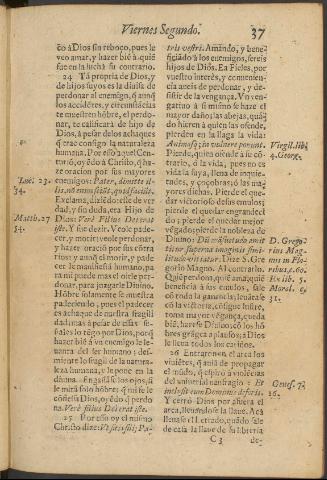 Viernes Segundo.
37
to à Dios sin reboço, pues le
veo amar, y hazer bié à quié
fue en la luchâ su contrario.
24 Tá propria de Dios, y
de hijos suyos es la diuisa de
perdonar al enemigo, q aunq
los accidétes, y circunstácias
te muestren hôbre, el perdo-
nar, te calificará de hijo de
Dios, à pesar de los achaques
q trae consigo la naturaleza
humana. Por esso aquel Cen-
turió, oyédo à Christo, q ha-
zia oracion por sus mayores
enemigos: Pater, dimitte il-
lis, nô enim sciût, quod faciût.
Exclama, diziédo: este de ver
dad, y sin duda, era Hijo de
Dios: Verè Filius Dei erat
iste. Y se dezir. Veole pade-
cer, y morir; veole perdonar, y
hazer oració por sus côtra
rios y amôq el morir, y pade
cer le manifiesta humano, pa-
ra mi puede mas el oirle per-
donar, para juzgarle Diuino.
Hôbre solamente le muestra
padeciendo, pues el padecer
es achaque de nuestra fragili
dad; mas à pesar de essas se-
ñales lo tégo por Dios, porq
hazer bié à vn enemigo le le-
uanta del ser humano; des-
miente lo fragil de la natura-
leza humana, y le pone en la
diuina.
le mirá solo hôbre; q mi fe le
côfiessa Dios, oyédo q perdo
na. Verè filius Dei erat iste.
25 Por esso oy el mismo
Christo dize: Vt sitis filij; Pa-
tris vestri. Amando, y bene-
ficiádo à los enemigos, sereis
hijos de Dios. Ea Fieles, por
vuestro interès, y convenien-
cia aueis de perdonar, y de-
sistir de la vengança. Vn ven-
gatiuo à si mismo se haze el
mayor daño; las abejas, quá-
do hieren à quien las ofende,
pierden en la llaga la vida:
Animasq; in vulnere ponunt.
Pierde, quien ofende à su cô-
trario, ô la vida, pues no es
vida la suya, llena de inquie-
tudes, y çoçobras, ô las ma-
yores dichas. Pierde el que-
dar victorioso de sus emulos;
pierde el quedar engrandeci
do; pierde el quedar mejor
vêgado; pierde la nobleza de
Diuino:
Dize S. Gre-
gorio Magno. Al contrario,
Quié perdona, quié aun
beneficia à sus emulos, sale
có toda la ganácia; leuátase
có la victoria, cósigue lustre,
toma mayor végança, queda
bié, hazese Diuino; có los hó
bres grágea aplausos; à Dios
le lleua todos los cariños.
26 Entraronen el arca los
viuiêtes, q auiá de propagar
el múdo, q espiró à violécias
del vniuersal naufragio: Et
inclusit eum Dominus deforis.
Y cerró Dios por afuera el
arca, lleuandose la llaue. Acá
lleuará el Criado, quando sale
de casa la llaue de su libreria
C 3 de-
Luc. 23.
34.
Matth. 27
54.
Virgil. lib.
4. Georg.
D. Grego
rius Mag-
nus in Flo
ribus, c. 60.
Ex lib. 5.
Moral. c.
31.
Genes. 7.
16.